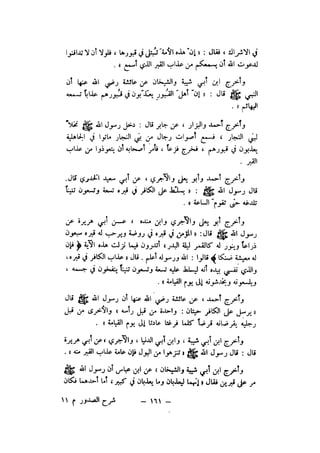 في الاشراك ، فقال : « إن هذه الأمة تُبتلى في قبورها ، فلولا أن لا تدافنوا
لدعوت الله أن يسمعكم من عذاب القبر الذي أسمع » .
وأخرج ابن أبي شيبة والشيخان عن عائشة رضي الله عنها أن
النبي ﷺ قال : « إن أهل القبور يعذبون في قبورهم عذاباً تسمعه
البهائم » .
وأخرج أحمد والبزار ، عن جابر قال : دخل رسول الله ﷺ نخلاً
لبني النجار ، فسمع أصوات رجال من بني النجار ماتوا في الجاهلية
يعذبون في قبورهم ، فخرج فزعاً ، فأمر أصحابه أن يتعوذوا من عذاب
القبر .
وأخرج أحمد وأبو يعلى والآجري ، عن أبي سعيد الخدري قال.
قال رسول الله ﷺ : « يسلط على الكافر في قبره تسعة وتسعون تنيناً
تلدغه حتى تقوم الساعة » .
وأخرج أبو يعلى والآجري وابن منده ، عن أبي هريرة عن
رسول الله ﷺ قال : « المؤمن في قبره في روضة ويرحب له قبره سبعون
ذراعاً وينور له كالقمر ليلة البدر ، أتدرون فيما نزلت هذه الآية ﴿ فإن
له معيشة ضنكا ﴾ قالوا : الله ورسوله أعلم . قال « عذاب الكافر في قبره ،
والذي نفسي بيده أنه ليسلط عليه تسعة وتسعون تنيناً ينفخون في جسمه ،
ويلسعونه ويخدشونه إلى يوم القيامة » .
وأخرج أحمد ، عن عائشة رضي الله عنها أن رسول الله ﷺ قال
« يرسل على الكافر حيتان : واحدة من قبل رأسه ، والأخرى من قبل
رجليه يقرضانه قرضاً كلما فرغتا عادتا إلى يوم القيامة » .
وأخرج ابن أبي شيبة ، وابن أبي الدنيا ، والآجري ، عن أبي هريرة
قال : قال رسول الله ﷺ « تنزهوا من البول فإن عامة عذاب القبر منه » .
وأخرج ابن أبي شيبة والشيخان ، عن ابن عباس أن رسول الله ﷺ
مر على قبرين فقال « إنهما ليعذبان وما يعذبان في كبير ، أما أحدهما فكان
– ١٦١ – شرح الصدور م ١١